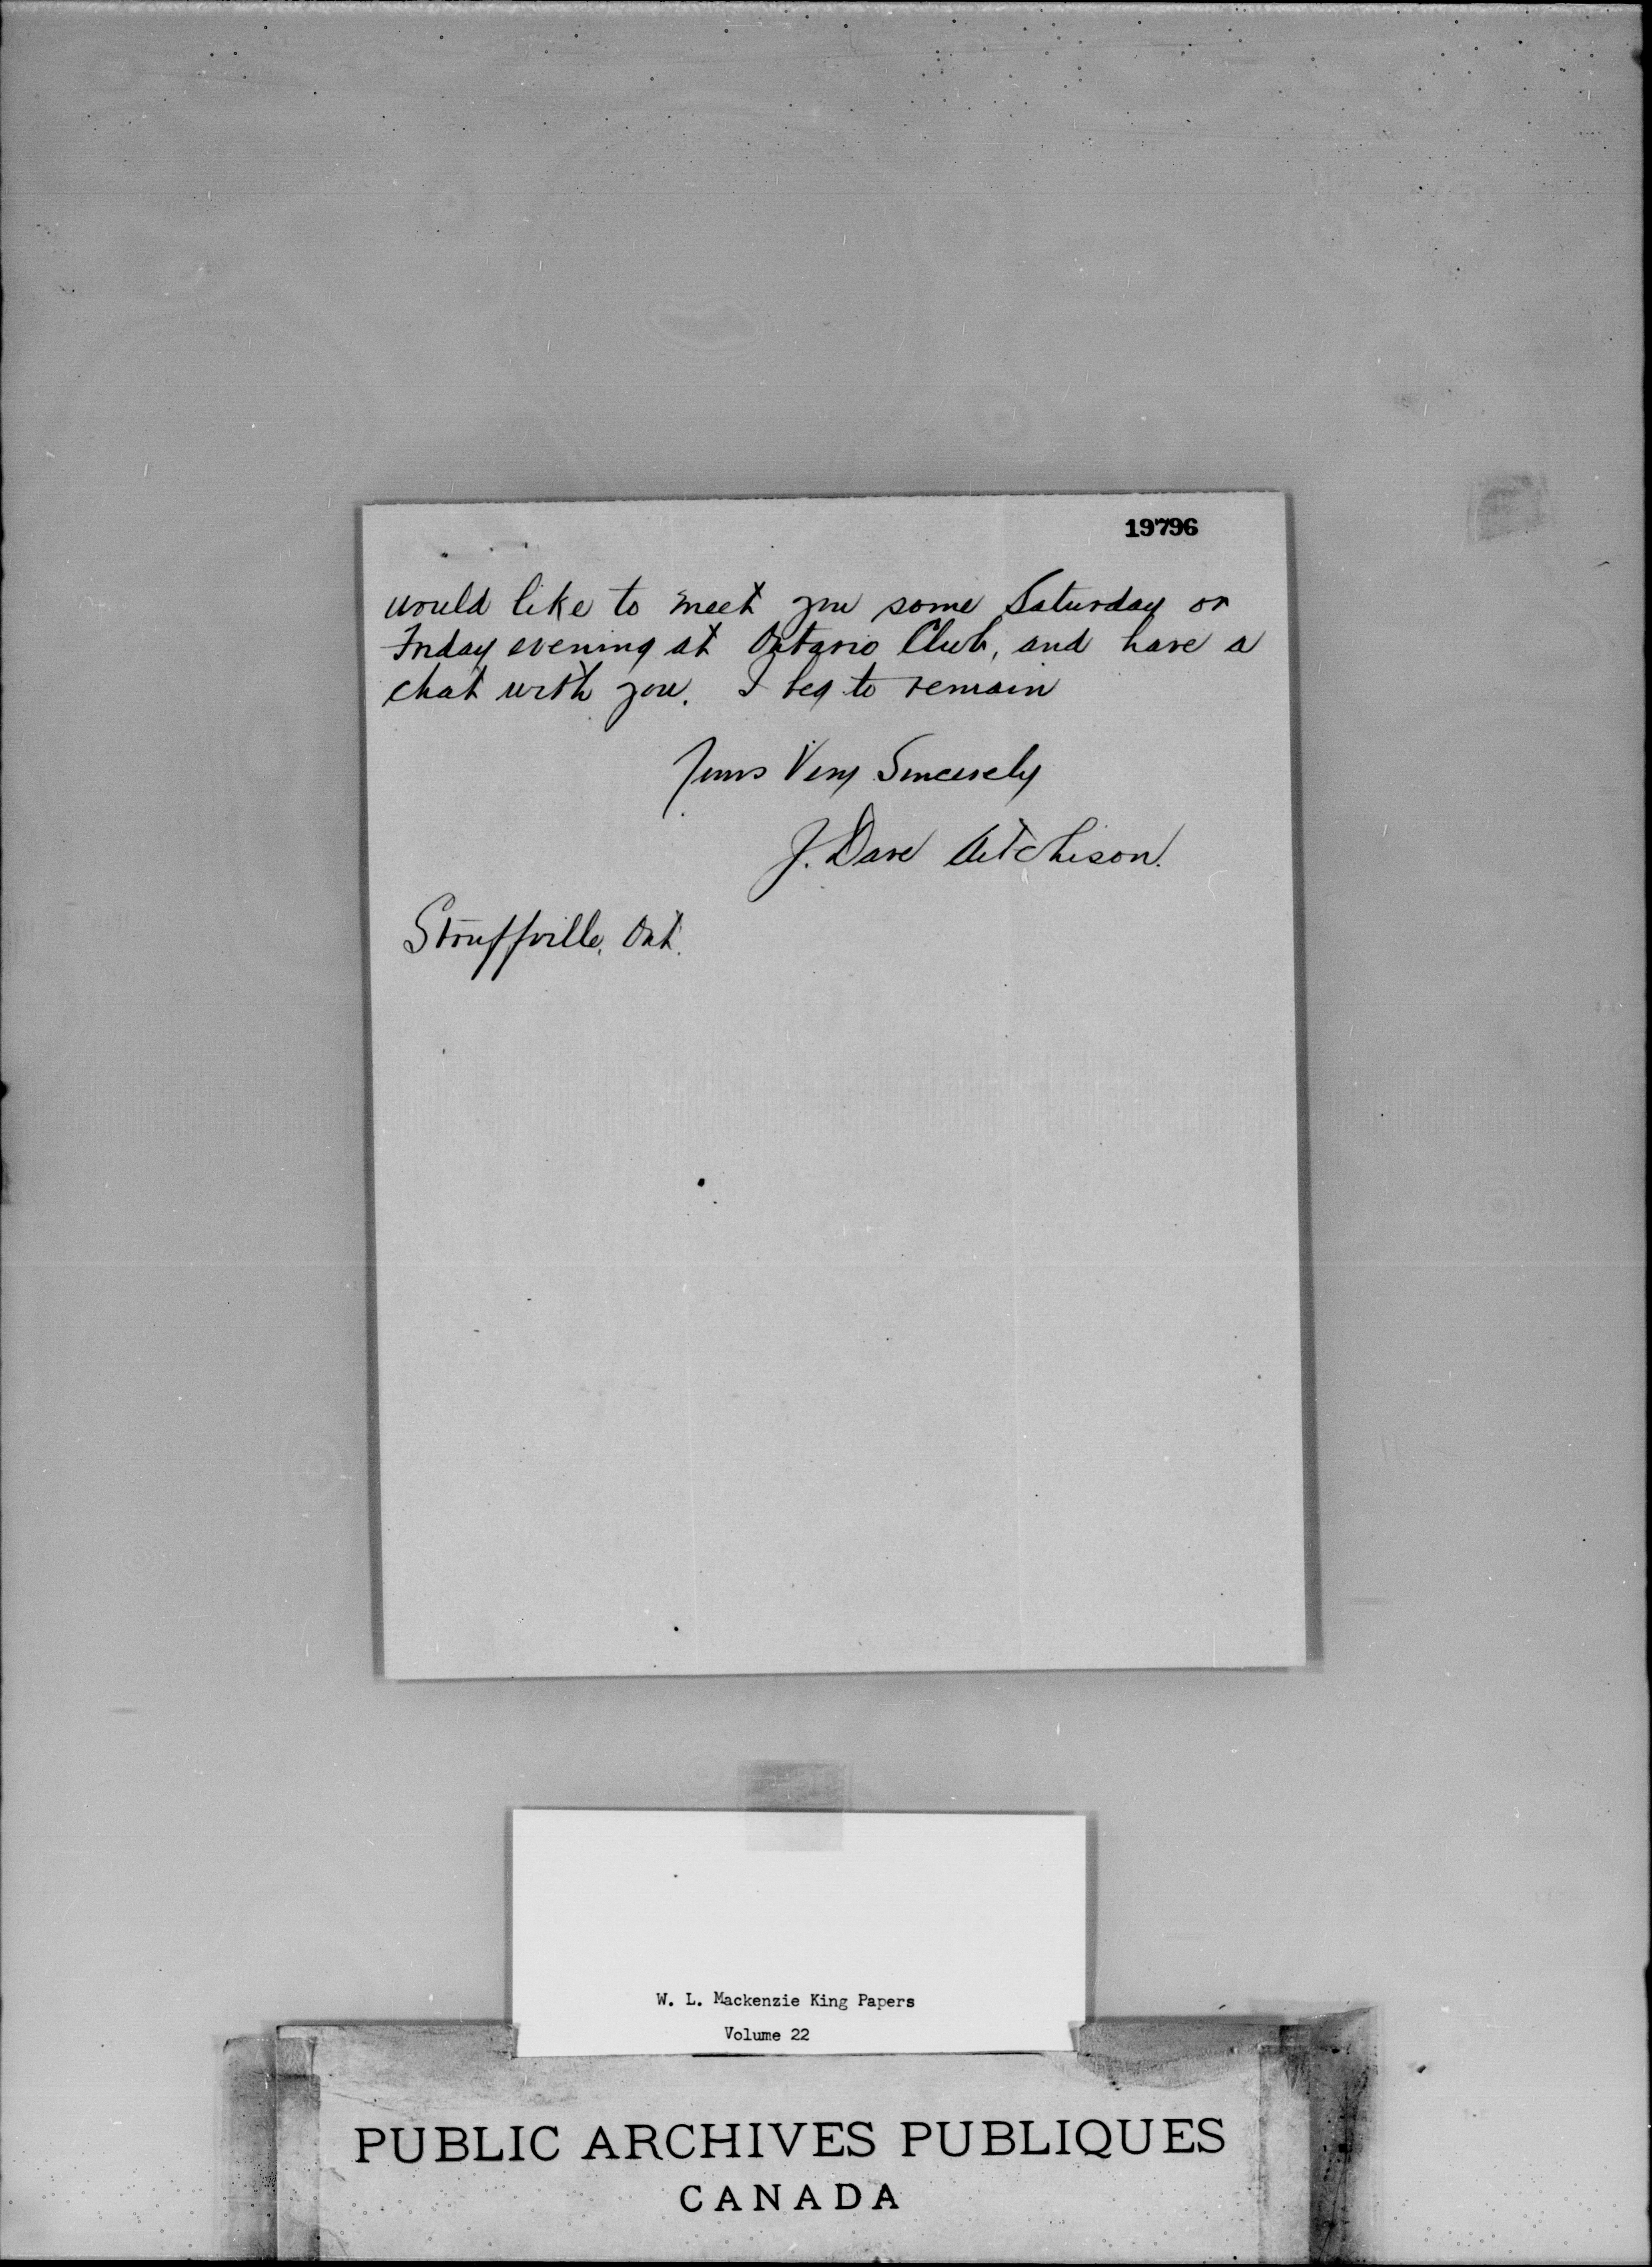 19796
would like to meet you some Saturday or
Friday evening at Ontario Club, and have a
chat with you. I beg to remain
Yours Very Sincerely
J. Dave Aitchison.
Stouffville, Ont.
W. L. Mackenzie King Papers
Volume 22
PUBLIC ARCHIVES PUBLIQUES
CANADA